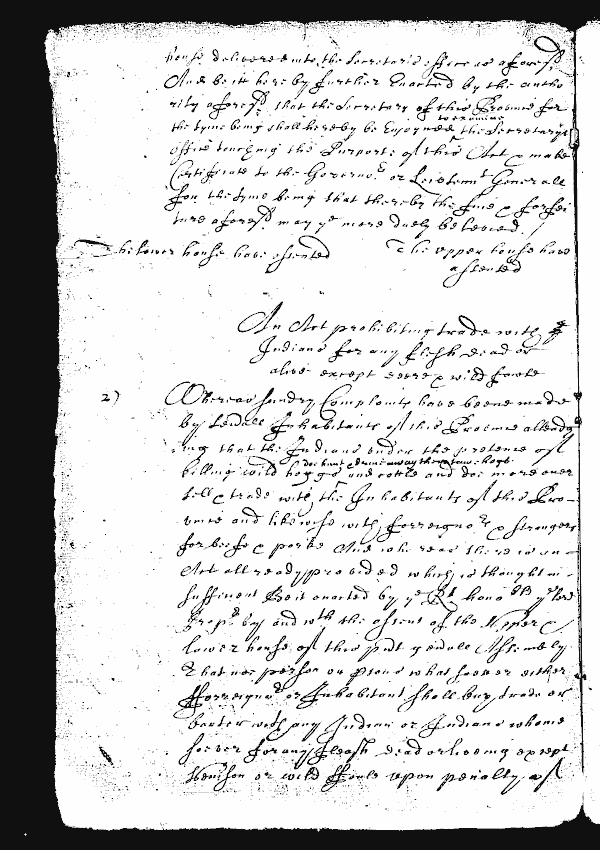 house delivered into the Secretarie's office as aforesd.
And be it hereby further Enacted by the autho
rity aforesd. that the Secretary of this Province for
to examine
the tyme being shall hereby be Enjoyned the Secretarys
office touching the Purporte of this Act & make
Certificate to the Governor. or Leiutennt Generall
for the tyme being that thereby the fine & forfei
ture aforesd. may ye more duely be levied.
The lower house have assented
The upper house have
assented
An Act prohibiting trade with ye
Indians for any flesh dead or
alive except deere & wild fowle
2)
Whereas sundry Complaints have beene made
by severall Inhabitants of this Province alleadg
ing that the Indians under the pretence of
doe hunt & drive away their tame hogs
killing wild hoggs and cattle and doe moreover
sell & trade with the Inhabitants of this Pro-
vince and likewise with forreignors & strangers
for beefe & porke And whereas there is an
Act allready provided which is thought in-
suffitient Be it enacted by ye Rt honoble ye lord
Propry by and wth the assent of the Upper &
lower house of this psnt genall Assembly
That noe person or psons what soever either
fforreignor or Inhabitant shall buy trade or
barter with any Indian or Indians whome
soever for any fleash dead or liveing except
Venison or wild ffowle upon penalty of